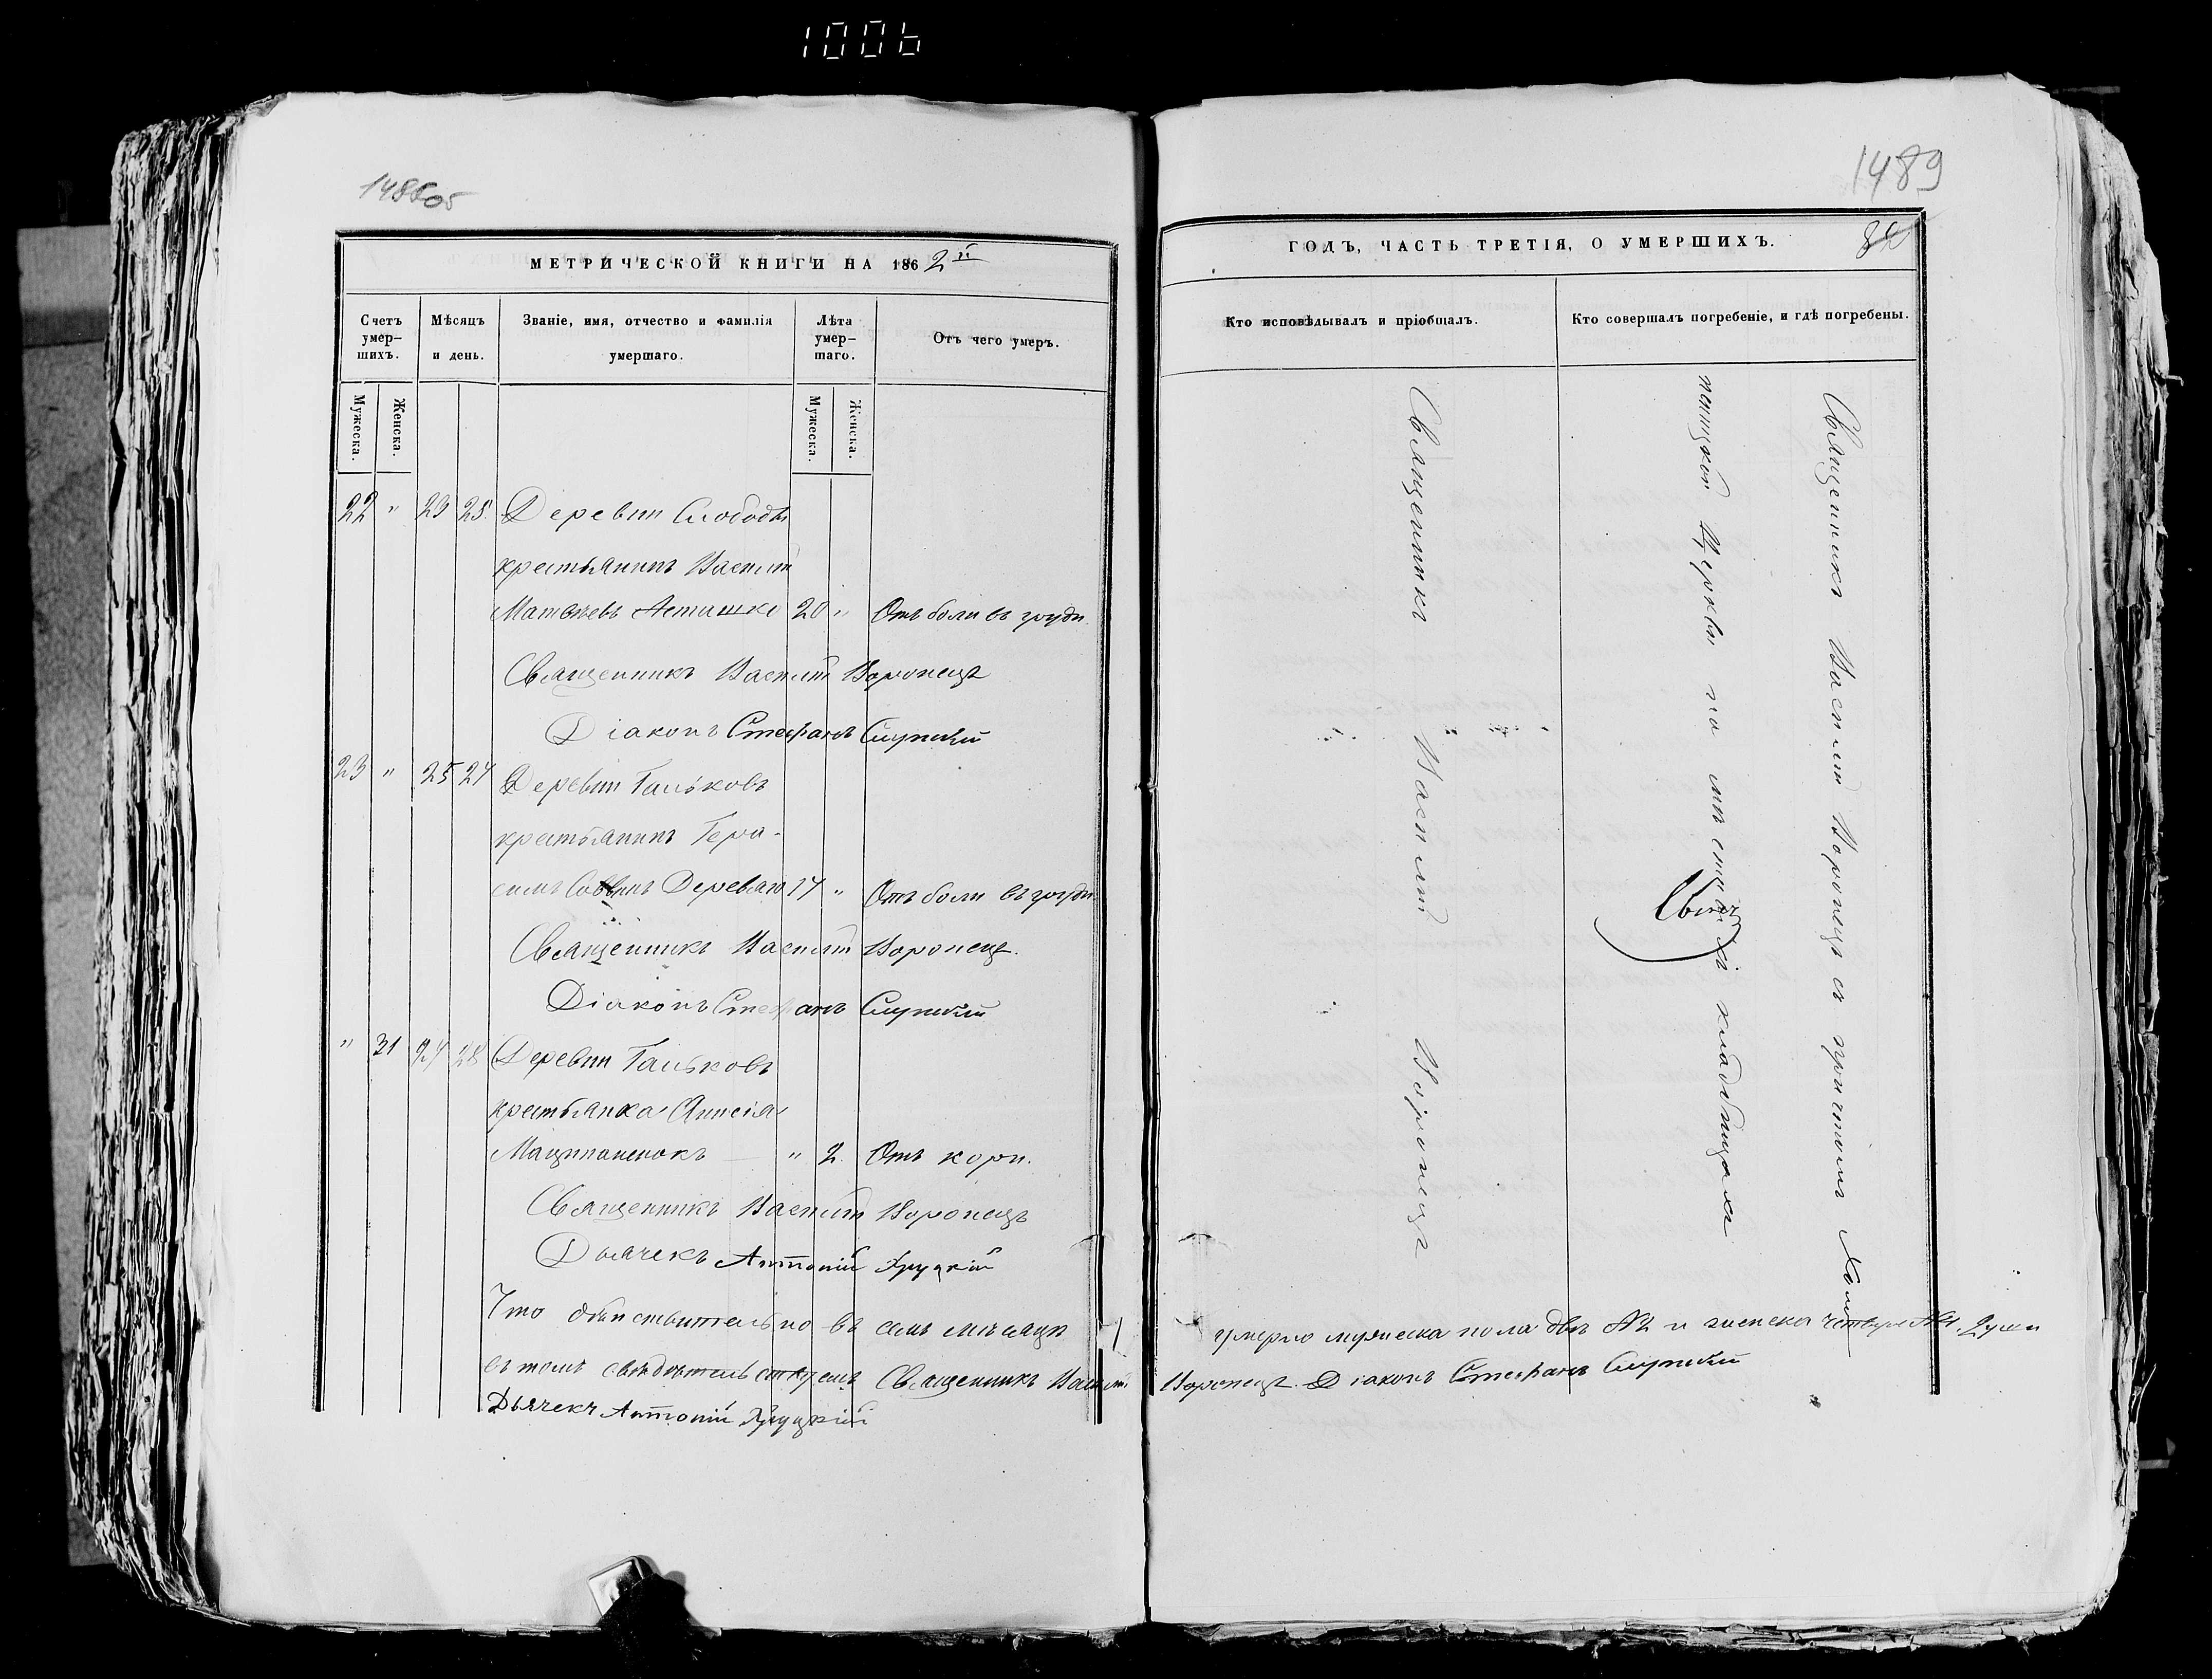 1006
1489
МЕТРИЧЕСКОЙ КНИГИ НА 1862й
ГОДЪ, ЧАСТЬ ТРЕТІЯ, О УМЕРШИХЪ.
Счетъ умер-шихъ.
Мѣсяцъ и день.
Званіе, имя, отчество и фамилія умершаго.
Лѣта умер-шаго.
Отъ чего умеръ.
Кто исповѣдывалъ и пріобщалъ.
Кто совершалъ погребеніе, и гдѣ погребены.
Мужеска.
Женска.
Мужеска.
Женска.
22 " 23 25 Деревни Слободы
крестьянинъ Василій
Матвѣевъ 20 " Отъ боли въ груди
Священникъ Василій Воронецъ
Діаконъ Стефанъ Слупскій
23 " 25 27 Деревни Гальковъ
крестьянинъ Гера-
симъ Саввинъ 17 " Отъ боли въ груди
Священникъ Василій Воронецъ.
Діаконъ Стефанъ Слупскій
" 31 27 28 Деревни Гальковъ
крестьянка Анисія
" 2 Отъ кори.
Священникъ Василій Воронецъ
Дьячекъ Антоній Хруцкій
Что дѣйствительно въ семъ мѣсяцѣ умерло мужеска пола двѣ №2 и женска четыре №4 души
въ томъ свидѣтельствуемъ Священникъ Василій Воронецъ. Діаконъ Стефанъ Слупскій
Дьячекъ Антоній Хруцкій
Священникъ Василій Воронецъ
Священникъ Василій Воронецъ съ причтомъ
Церкви на мѣстныхъ кладбищахъ